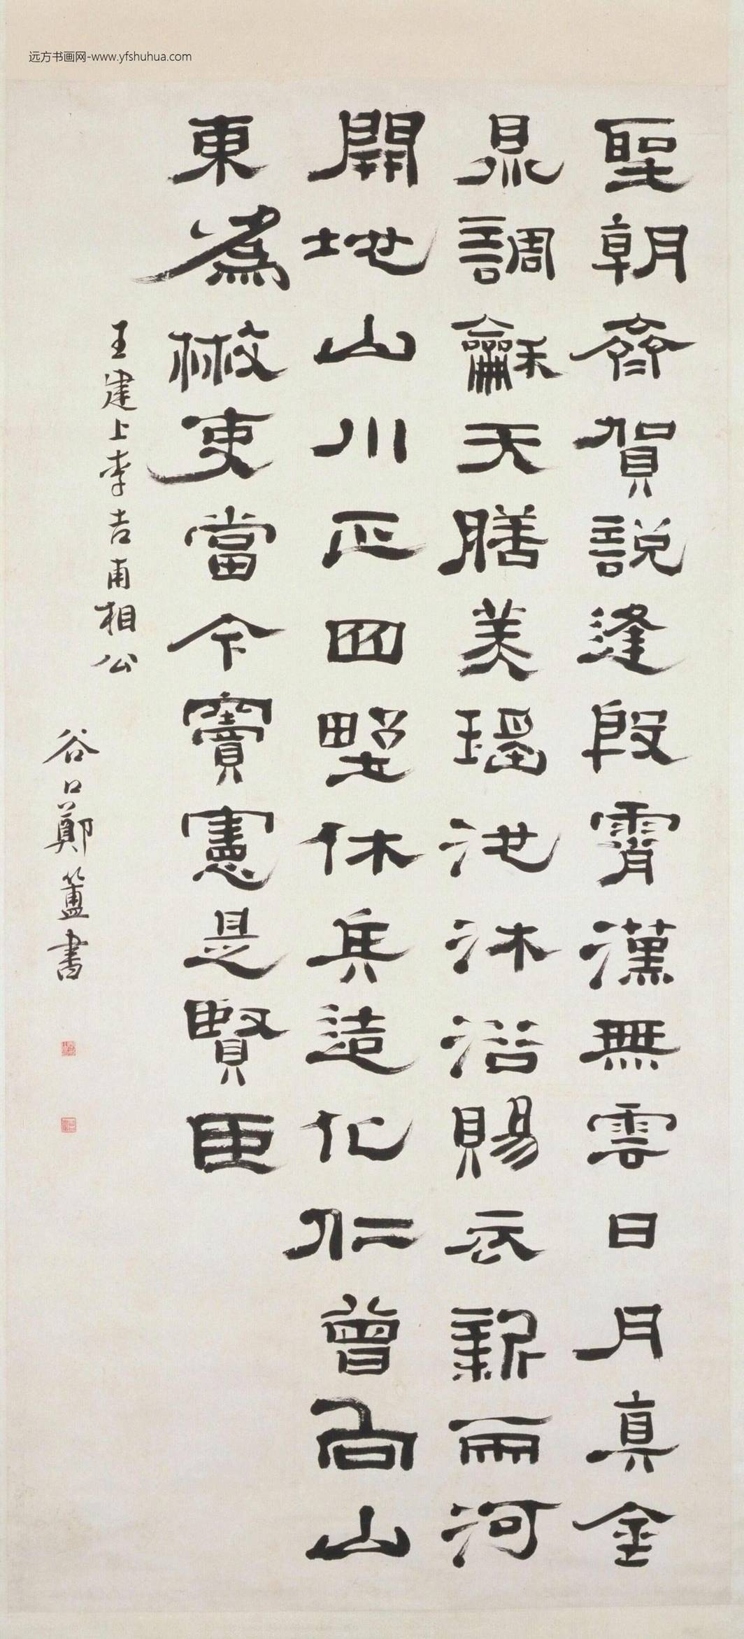 远方书画网-www.yfshuhua.com
聖朝齊賀說逢殷霄漢無雲日月真金
鼎調龢天膳美瑤池沐浴賜衣新兩河
開地山川正四野休兵造化仁曾向山
東為散吏當今竇憲是賢臣
王建上李吉甫相公
谷口鄭簠書